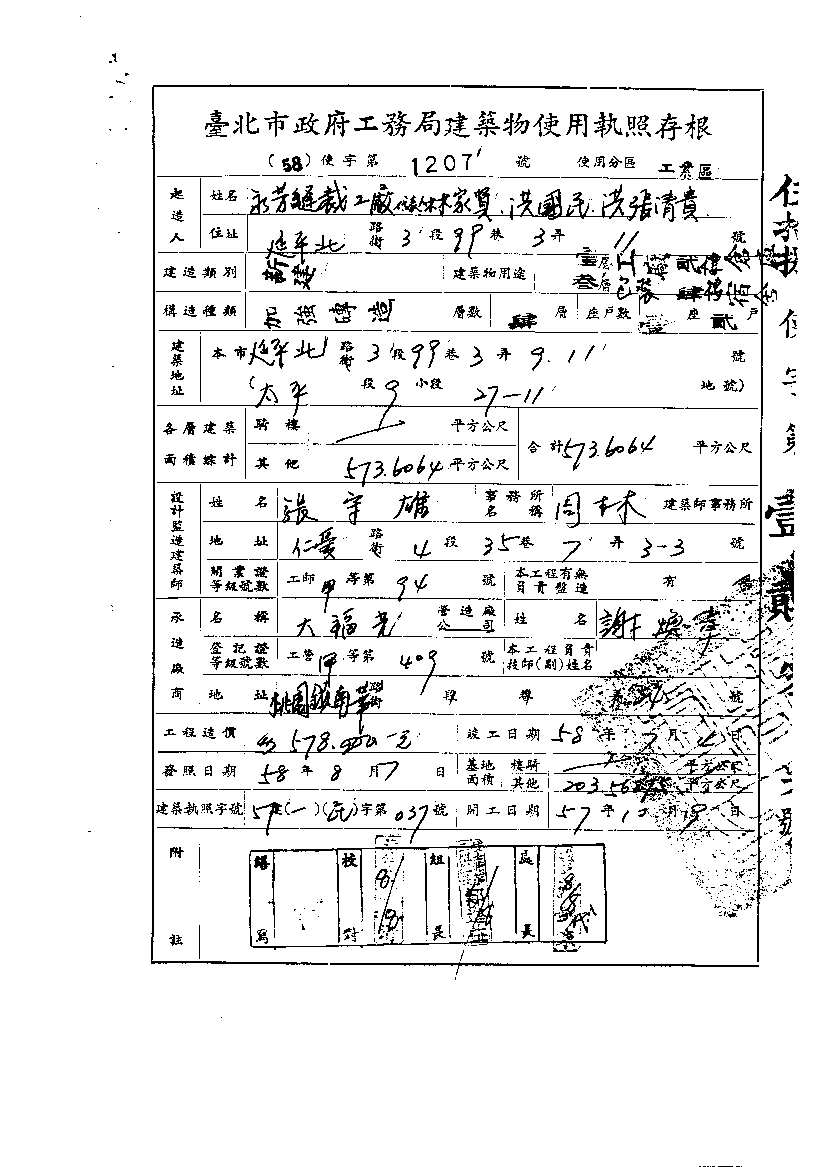 臺北市政府工務局建築物使用執照存根
(58)使字第 1207 號 使用分區 工業區
起造人 姓名 永芳縫裁工廠 林家賢 洪國民 洪張清貴
住址 延平北 路街 3 段 99 巷 3 弄 11 號
建造類別 新建 建築物用途 壹層工廠 貳樓 叁層包裝 肆樓宿舍
構造種類 加強磚造 層數 肆 層 座戶數 壹 座 貳 戶
建築地址 本市 延平北 路街 3 段 99 巷 3 弄 9.11 號
(太平 段 9 小段 27-11 地號)
各層建築面積總計 騎樓 平方公尺 合計 573.6064 平方公尺
其他 573.6064 平方公尺
設計監造建築師 姓名 張宇雄 事務所名稱 周林 建築師事務所
地址 仁愛 路街 4 段 35 巷 7 弄 3-3 號
開業證等級號數 工師 甲 等第 94 號 本工程有無負責監造 有
承造廠商 名稱 大福光 營造廠公司 姓名 謝
登記證等級號數 工營 甲 等第 409 號 本工程負責技師(副)姓名
地址 桃園鎮 路街 段 號
工程造價 578. 元 竣工日期 58 年 7 月 日
發照日期 58 年 8 月 7 日 基地面積 樓騎 平方公尺
其他 203.56 平方公尺
建築執照字號 57建(一)(民)字第 037 號 開工日期 57 年 月 日
附註
繕寫 校對 組長 區長
使字第壹貳